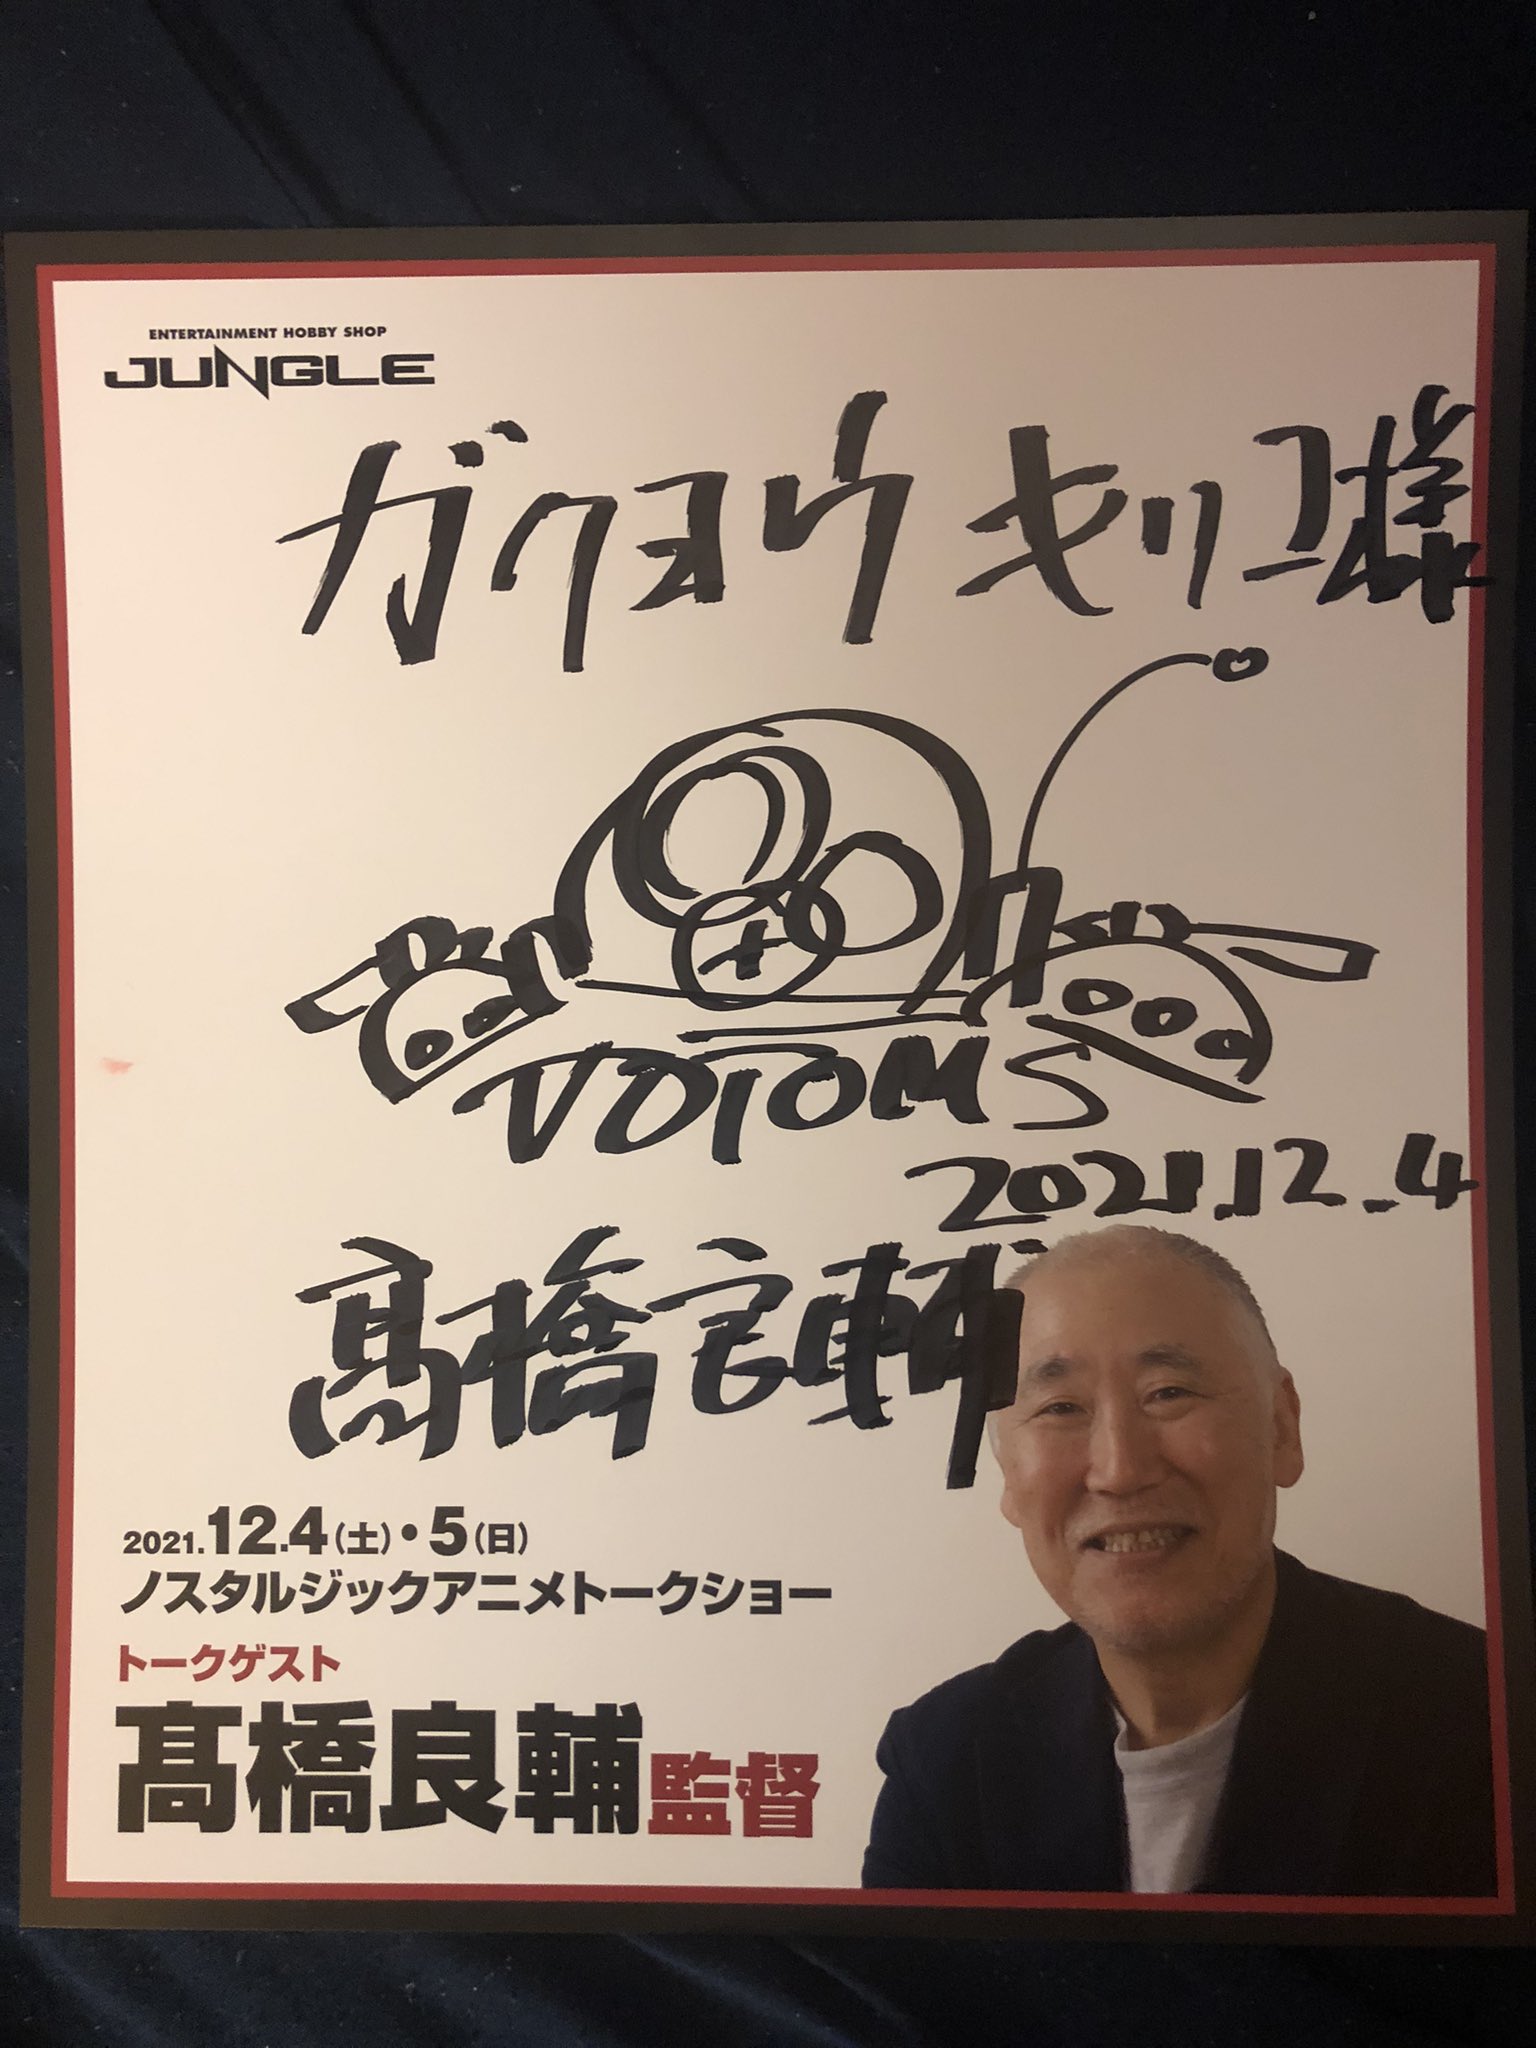 ENTERTAINMENT HOBBY SHOP
JUNGLE
ガクヨウ キリコ様
VOTOMS
2021.12.4
髙橋良輔
2021.12.4(土)・5(日)
ノスタルジックアニメトークショー
トークゲスト
髙橋良輔監督